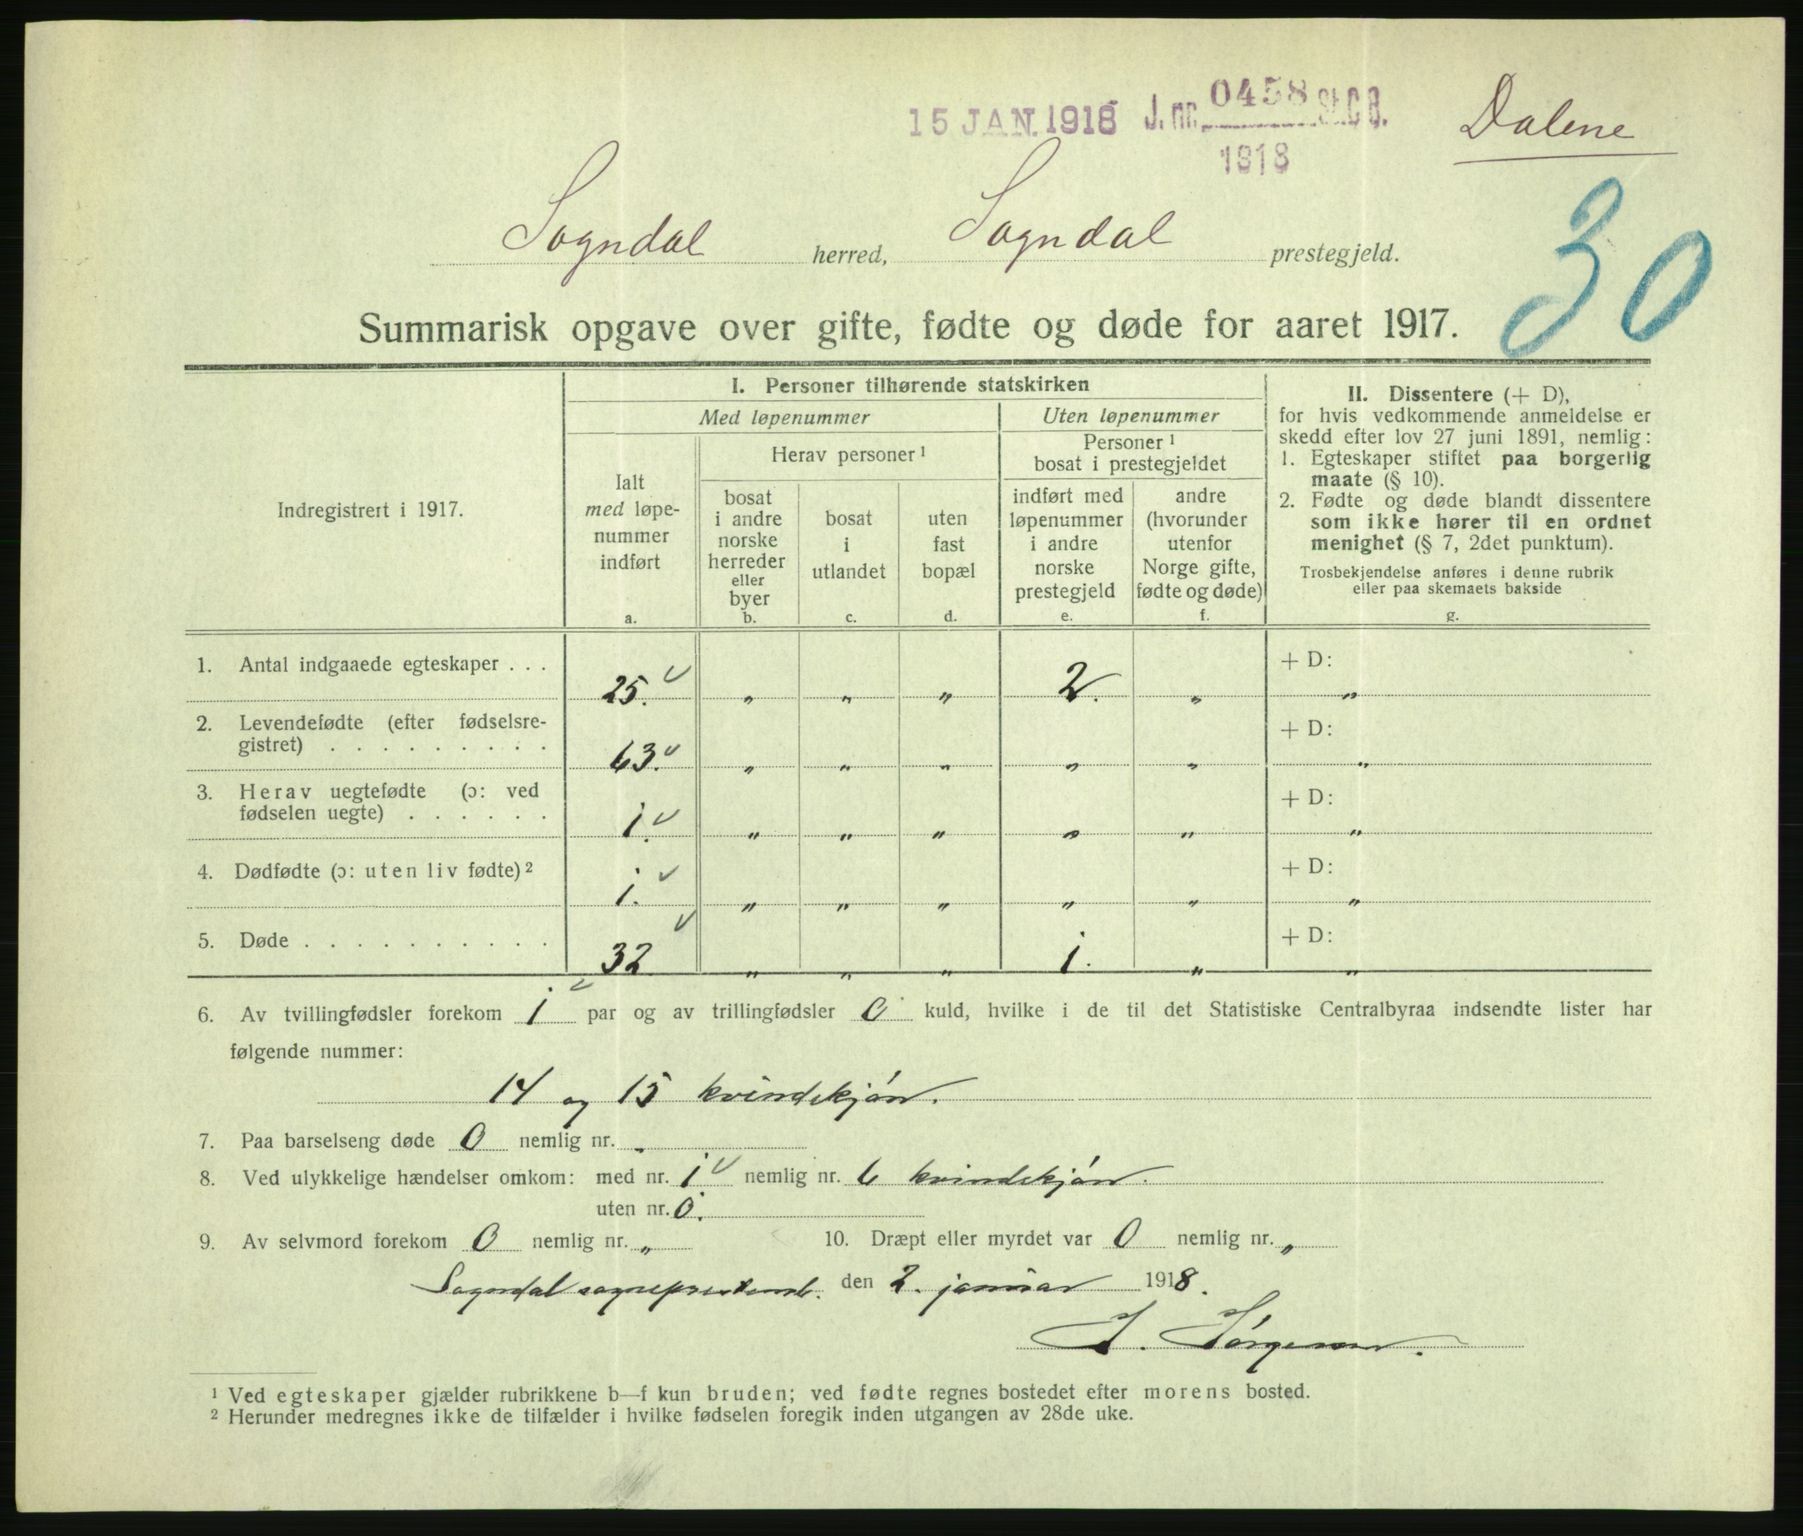 15 JAN. 1918 J. nr. 0458 St.C.B.
1918
Dalene
30
Sogndal herred, Sogndal prestegjeld.
Summarisk opgave over gifte, fødte og døde for aaret 1917.
Indregistrert i 1917.
I. Personer tilhørende statskirken
Med løpenummer
Uten løpenummer
Ialt
med løpe-
nummer
indført
a.
Herav personer ¹
bosat
i andre
norske
herreder
eller
byer
b.
bosat
i
utlandet
c.
uten
fast
bopæl
d.
Personer ¹
bosat i prestegjeldet
indført med
løpenummer
i andre
norske
prestegjeld
e.
andre
(hvorunder
utenfor
Norge gifte,
fødte og døde)
f.
II. Dissentere (+ D),
for hvis vedkommende anmeldelse er
skedd efter lov 27 juni 1891, nemlig:
1. Egteskaper stiftet paa borgerlig
maate (§ 10).
2. Fødte og døde blandt dissentere
som ikke hører til en ordnet
menighet (§ 7, 2det punktum).
Trosbekjendelse anføres i denne rubrik
eller paa skemaets bakside
g.
1. Antal indgaaede egteskaper . . . 25. „ „ „ 2. „ + D: „
2. Levendefødte (efter fødselsre-
gistret) . . . . . . . . . 63. „ „ „ „ „ + D: „
3. Herav uegtefødte (ɔ: ved
fødselen uegte) . . . . . . 1. „ „ „ „ „ + D: „
4. Dødfødte (ɔ: uten liv fødte) ² 1. „ „ „ „ „ + D: „
5. Døde . . . . . . . . . . 32 „ „ „ 1. „ + D: „
6. Av tvillingfødsler forekom 1 par og av trillingfødsler 0 kuld, hvilke i de til det Statistiske Centralbyraa indsendte lister har
følgende nummer:
14 og 15 kvindekjøn.
7. Paa barselseng døde 0 nemlig nr. „
8. Ved ulykkelige hændelser omkom: med nr. 1 nemlig nr. 6 kvindekjøn.
uten nr. 0.
9. Av selvmord forekom 0 nemlig nr. „ 10. Dræpt eller myrdet var 0 nemlig nr. „
Sogndal sogneprestemb. den 2. januar 1918.
¹ Ved egteskaper gjælder rubrikkene b—f kun bruden; ved fødte regnes bostedet efter morens bosted.
² Herunder medregnes ikke de tilfælder i hvilke fødselen foregik inden utgangen av 28de uke.